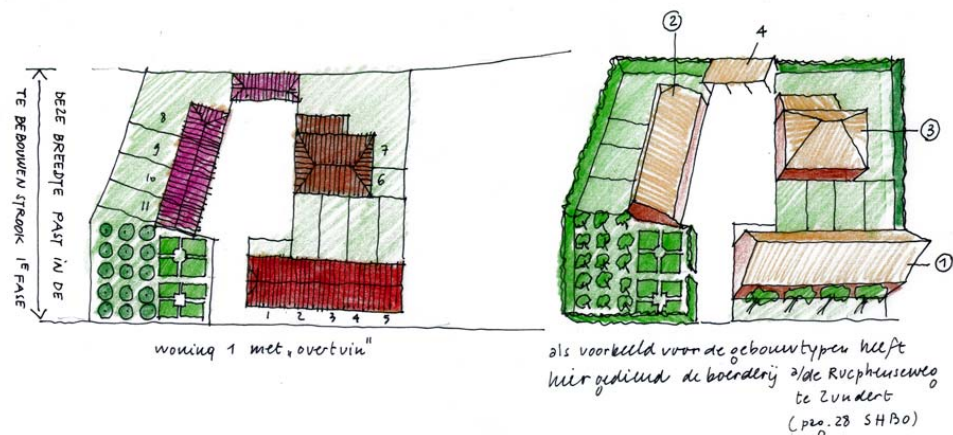 DEZE BREEDTE PAST IN DE
TE BEBOUWEN STROOK 1E FASE
8
9
10
11
7
6
1 2 3 4 5
woning 1 met „overtuin"
2
4
3
1
als voorbeeld voor de gebouwtypen heeft
hier gediend de boerderij a/de Rucphenseweg
te Zundert
(pag. 28 SHBO)